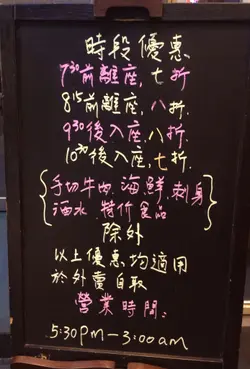 時段優惠
7³⁰前離座,七折
8¹⁵前離座,八折.
9³⁰後入座,八折.
10³⁰後入座,七折.
{手切牛肉.海鮮刺身
酒水.特价食品}
除外
以上優惠均適用
於外賣自取
營業時間:
5:30pm－3:00am